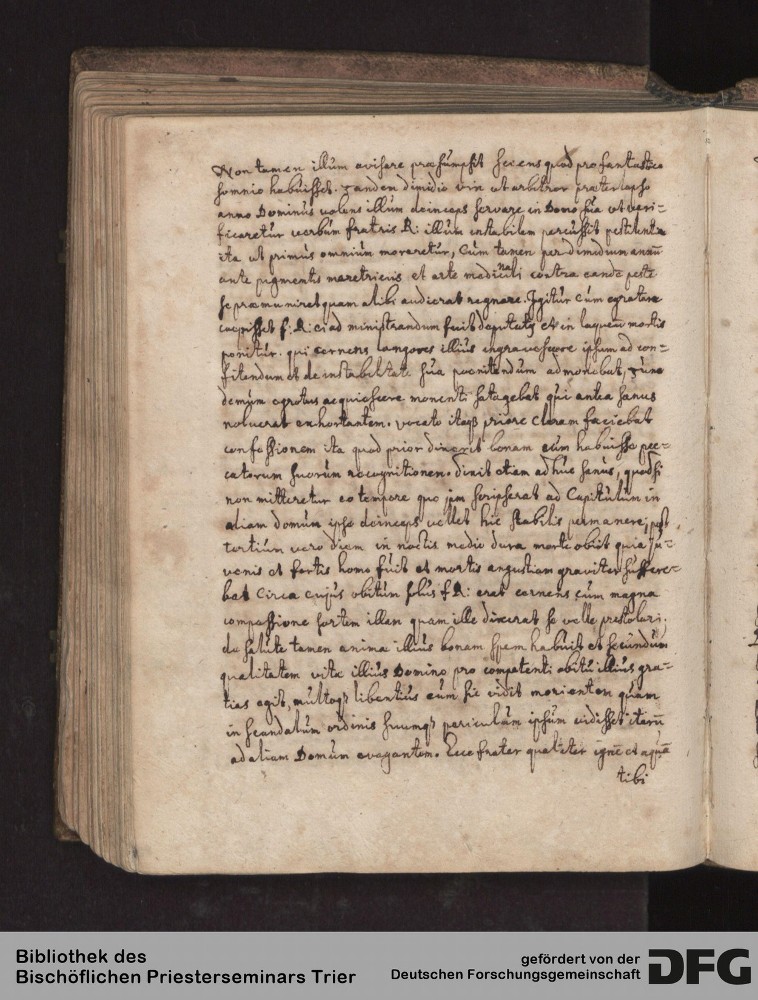 Non tamen illum avisare præsumpsit sciens quod pro fantastico
somnio habuisset. tandem dimidio vix ut arbitror præterlapso
anno Dominus volens illum deinceps servare in Domo sua ut veri-
ficaretur verbum fratris R: illum instabilem percussit pestilentia
ita ut primus omnium moreretur, Cum tamen per dimidium annū
ante pigmentis meretricis et arte medicinali contra eandē pestē
se præmuniret quam alibi audierat regnare. Igitur cum egrotare
cœpisset f: R: ei ad ministrandum fuit deputatus et in laqueū mortis
ponitur. qui cernens langores illius ingravescere ipsum ad con-
fitendum et de instabilitate sua pœnitendum admonebat, tunc
demum egrotus acquiescere monenti satagebat qui antea sanus
noluerat exhortantem. vocato itaqз priore Claram faciebat
confessionem ita quod prior dixerit bonam eum habuisse pec-
catorum suorum recognitionem. dixit etiam adhuc sanus, quod si
non mitteretur eo tempore quo jam scripserat ad Capitulum in
aliam domum ipse deinceps vellet hic stabilis permanere; post
tertium vero diem in noctis medio dura morte obiit quia ju-
venis et fortis homo fuit et mortis angustiam graviter suffere-
bat Circa cujus obitum solus f: R: erat cernens cum magna
compassione sortem illam quam ille dixerat se velle prestolari.
de salute tamen anima illius bonam spem habuit et secundum
qualitatem vitæ illius Domino pro competenti obitu illius gra-
tias egit, multoqз libentius eum sic vidit morientem quam
in scandalum ordinis suumqз periculum ipsum vidisset iterū
ad aliam Domum evagantem. Ecce frater qualiter ignē et aquā
tibi
Bibliothek des
Bischöflichen Priesterseminars Trier
gefördert von der
Deutschen Forschungsgemeinschaft
DFG